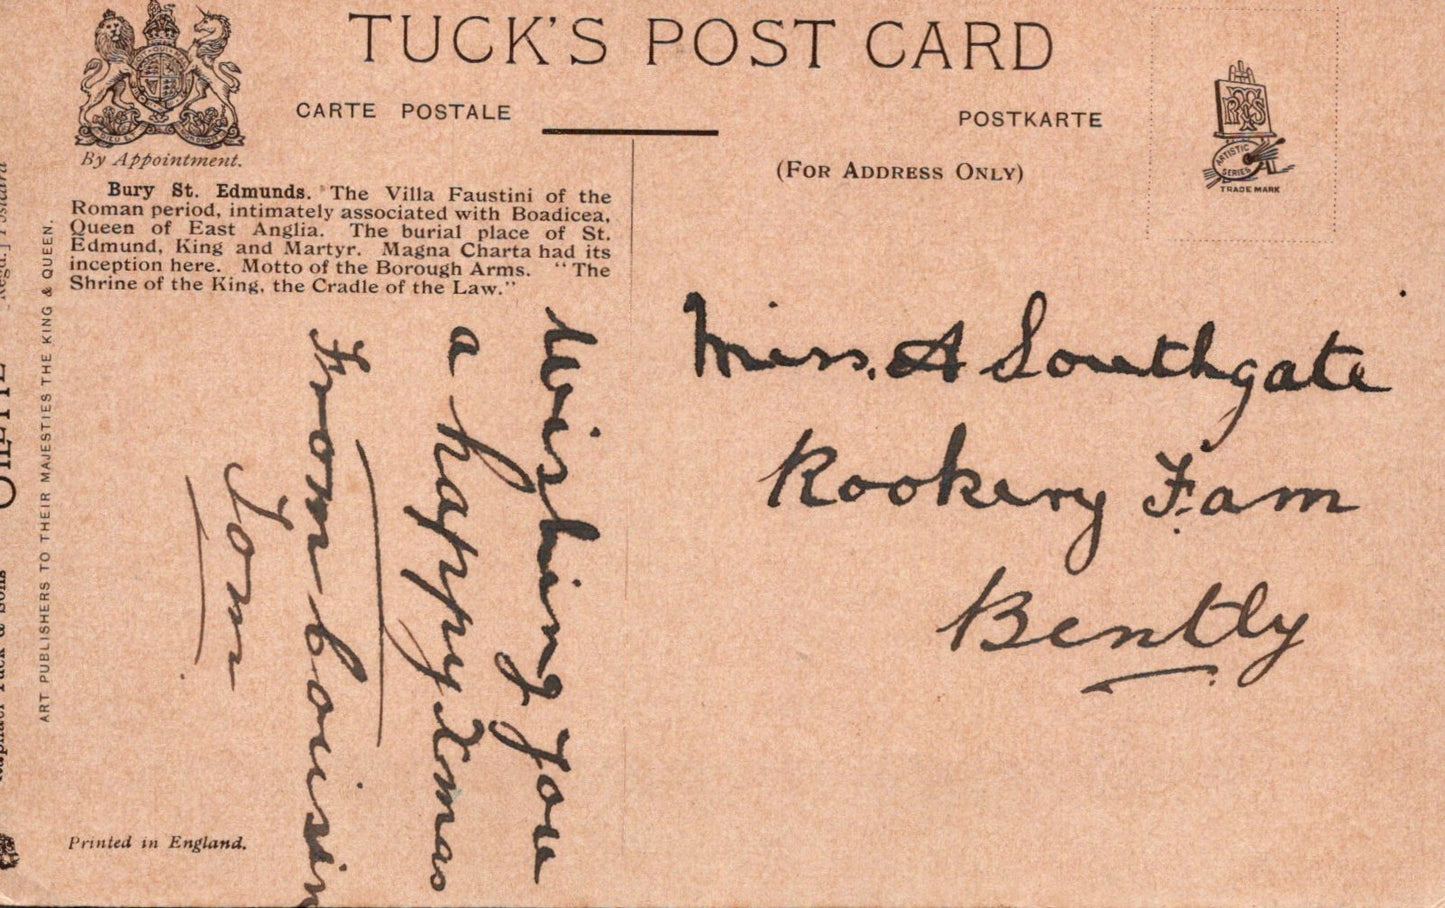 TUCK'S POST CARD
CARTE POSTALE
POSTKARTE
(FOR ADDRESS ONLY)
By Appointment.
Bury St. Edmunds. The Villa Faustini of the
Roman period, intimately associated with Boadicea,
Queen of East Anglia. The burial place of St.
Edmund, King and Martyr. Magna Charta had its
inception here. Motto of the Borough Arms. "The
Shrine of the King, the Cradle of the Law."
ARTISTIC
SERIES
TRADE MARK
Wishing you
a happy Xmas
From Cousin
Tom
Miss. A Southgate
Rookery Fam
Bently
ART PUBLISHERS TO THEIR MAJESTIES THE KING & QUEEN.
Raphael Tuck & Sons "OILETTE" [Regd.] Postcard
Printed in England.